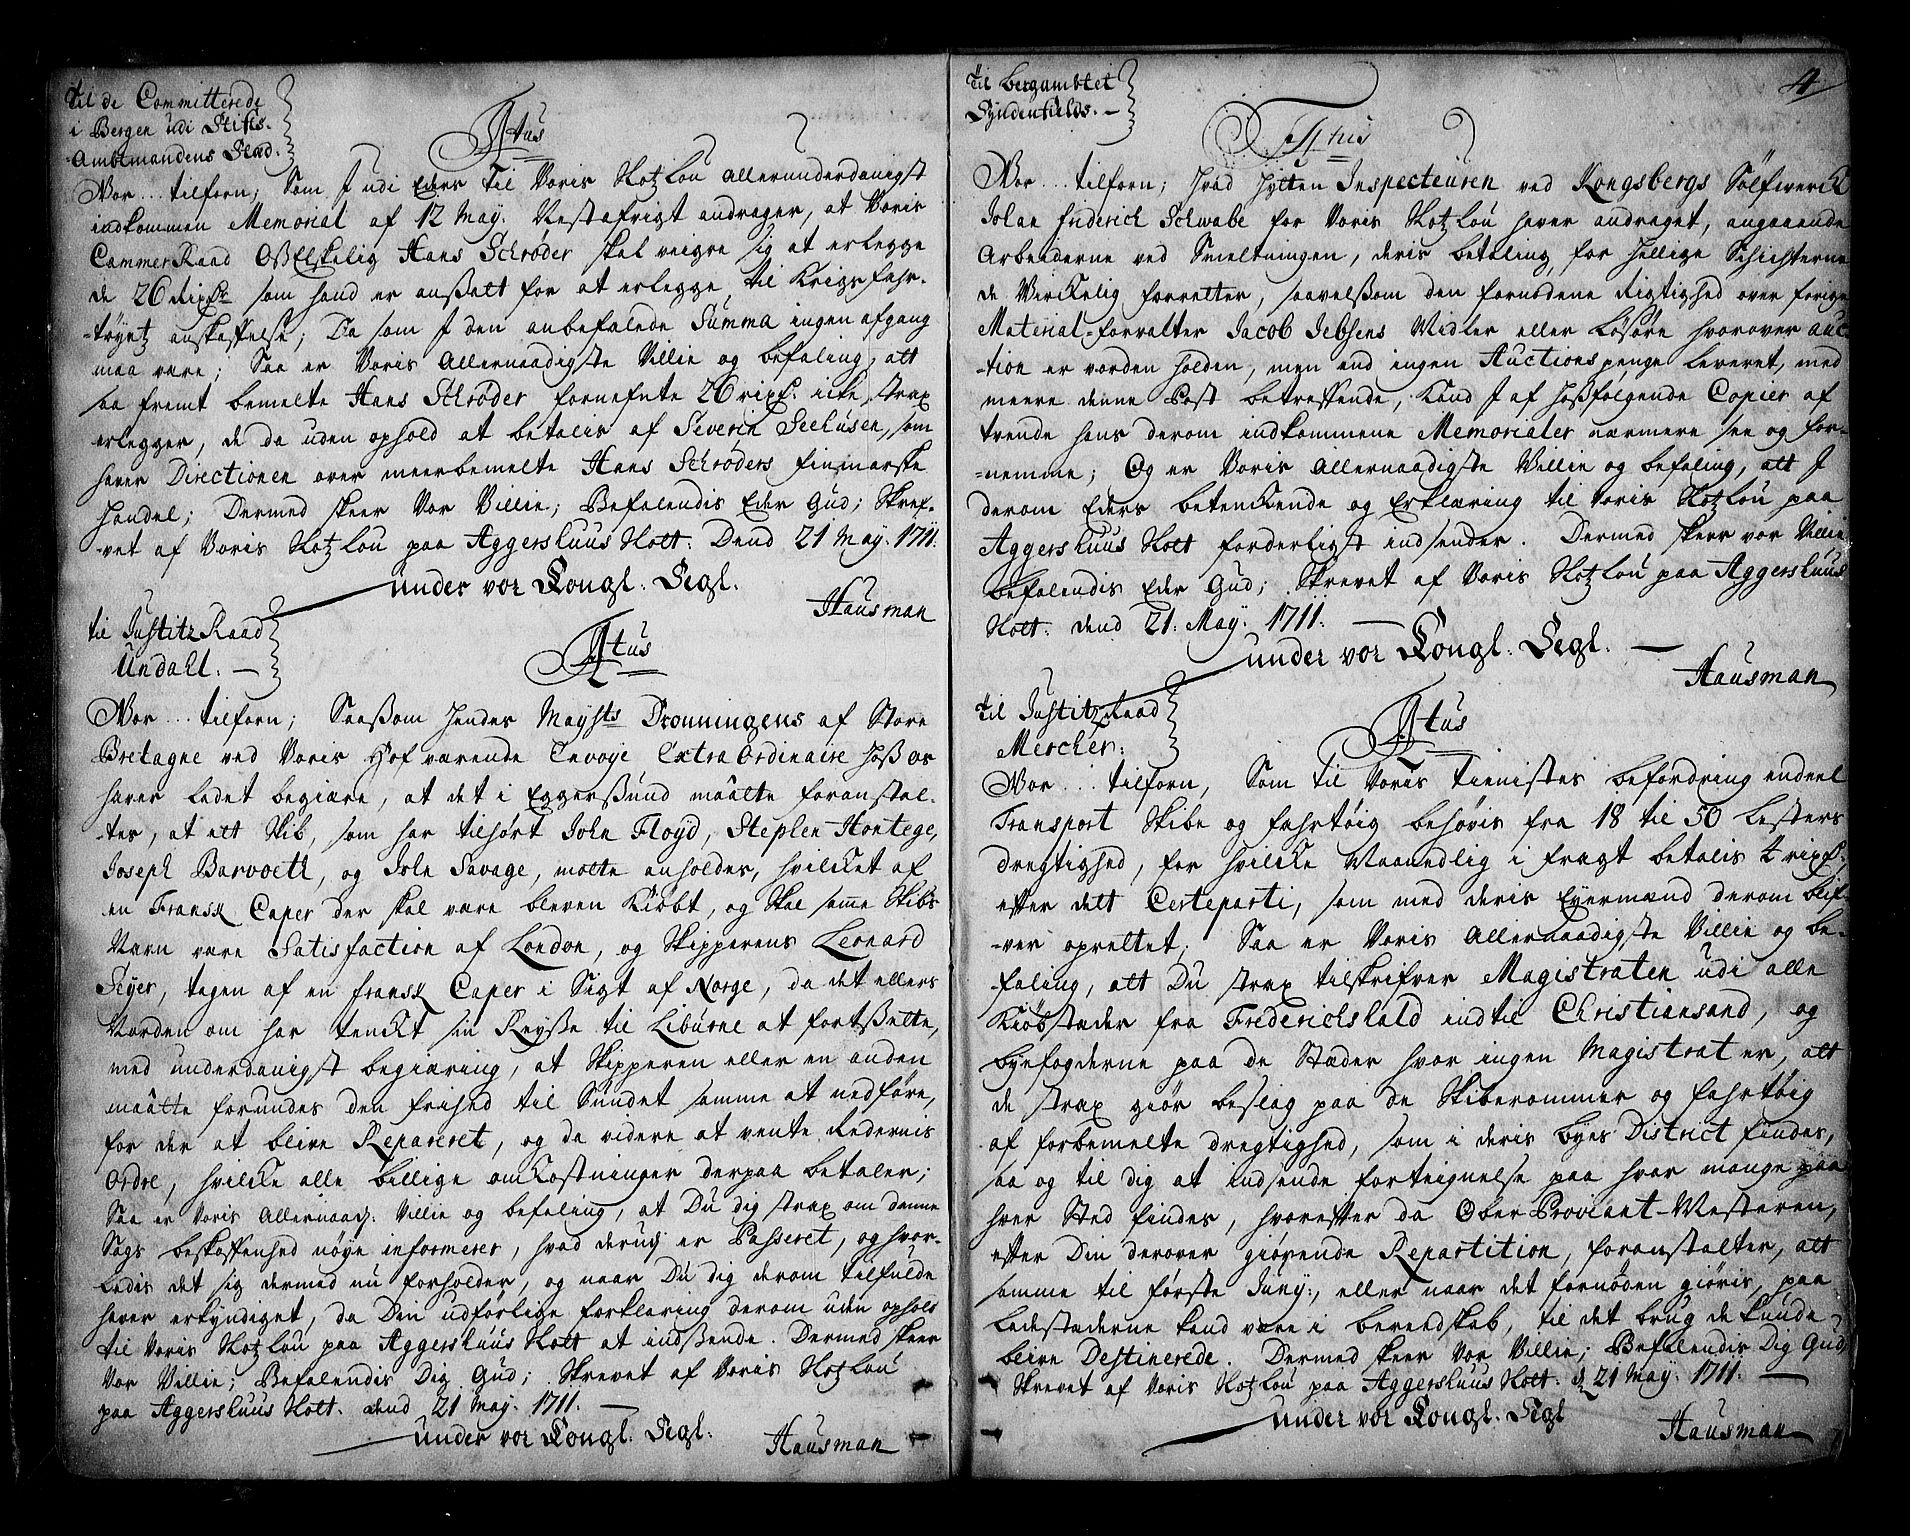 Til de Committerede
i Bergen udi Stifts-
Ambtmandens Sted.
Titus
Vor... tilforn; Som I udi Eders til Voris Slotzlou allerunderdanigst
indkommen Memorial af 12 May. Restafrigt andrager, at Voris
CammerRaad Oß Elskelig Hans Schrøder skal veigre sig at erlegge
de 26 rixdr som hand er ansatt for at erlegge til Krigsfahr-
-tøyets anskaffelse; Da som I den anbefalede Summa ingen afgang
maa vare; Saa er Voris Allernaadigste Villie og befaling, att
saa fremt bemelte Hans Schrøder fornefnte 26 rixd. icke strax
erlegger, de da uden ophold at betalis af Severin Seehusen, som
haver Directionen over meerbemelte Hans Schrøders finmarske
Handel; Dermed skeer Vor Villie; Befalendis Eder Gud; Skref-
-vet af Voris Slotzlou paa Aggershuus Slott. Dend 21 May. 1711.
under vor Kongl. Segl.
Hausman
til JustitzRaad
Undahl.
Titus
Vor... tilforn; Saasom Hendes Maysts Dronningens af Store
Bretagne ved Voris Hof værende Envoye Extra Ordinaire hoß os
haver ladet begiære, at det i Eggersund maatte foranstal-
-tes, at ett Skib, som har tilhørt John Floyd, Stephen Hontege,
Joseph Barvoeth, og John Savage, motte anholdes, hvilcket af
en Fransk Caper der skal være bleven Kiøbt, og skal samme Skibs
Navn vare Satisfaction af London, og Skipperens Leonard
Feyer, tagen af en fransk Caper i Sigt af Norge, da det ellers
Norden om har tenckt sin Reyse til Liburne at fortsette,
med underdanigst begiæring, at Skipperen eller en anden
maatte forundes den frihed til Sundet samme at nedføre,
for der at blive Repareret, og da videre at vente Redernis
Ordre, hvilcke alle billige omkostninger derpaa betaler;
Saa er Voris Allernaadg. Villie og befaling, at Du dig strax om denne
Sags beskaffenhed nøye informerer, hvad derudj er Passeret, og hvor-
ledis det sig dermed nu forholder, og naar Du dig derom tilfulde
haver erkyndiget, da Din udførlige forklaring derom uden ophold
til Voris Slotzlou paa Aggershuus Slott at indsende. Dermed skeer
Vor Villie; Befalendis Dig Gud; Skrevet af Voris Slotzlou
paa Aggershuus Slott. dend 21 May. 1711.
under vor Kongl. Segl.
Hausman
4
Til Bergambtet
Syndenfields.
Titus
Vor... tilforn; Hvad Hytten Inspecteuren ved Kongsbergs Sølfwerck
Johan Friderich Schwabe for Voris Slotzlou haver andraget, angaaende
Arbeiderne ved Smeltningen, deris betaling for hellige Schichterne
de Virckelig forretter, saavelsom den fornødene Rigtighed over forige
Material-forvalter Jacob Jebsens Midler eller Løsøre hvorover auc-
-tion er vorden holden, men end ingen Auctions penge leveret, med
meere denne Post betreffende, Kand I af hoßfølgende Copier af
trende hans derom indkommene Memorialer nærmere see og for-
-nemme; Og er Voris Allernaadigste Villie og befaling, att I
derom Eders betenckende og Erklæring til Voris Slotzlou paa
Aggershuus Slott forderligst indsender. Dermed skeer vor Villie
befalendis Eder Gud; Skrevet af Voris Slotzlou paa Aggershuus
Slott. dend 21. May. 1711.
under vor Kongl. Segl.
Hausman
til JustitzRaad
Mercher.
Titus
Vor... tilforn, Som til Voris Tienistes befordring endeel
Transport Skibe og fahrtøig behøvis fra 18 til 50 Lesters
dregtighed, for hvilcke Maanedlig i fragt betalis 4 rixd.
efter dett Certeparti, som med deris Eyermænd derom blif-
-ver oprettet; Saa er Voris Allernaadigste Villie og be-
faling, att Du strax tilskrifver Magistraten udi alle
Kiøbstæder fra Friderichshald indtil Christiansand, og
byefogderne paa de Stæder hvor ingen Magistrat er, att
de strax giør beslag paa de Skiberommer og fahrtøig
af forbemelte dregtighed, som i deris byes District findes,
saa og til dig at indsende forteignelse paa hvor mange paa
hver Sted findes, hvorefter da Ober-Proviant-Mesteren,
efter Din derover giørende Repartition, foranstalter, att
samme til første Juny:, eller naar det fornøden giøris, paa
Ladestæderne kand være i beredskab, til det brug de kunde
blive Destinerede. Dermed skeer Vor Villie; Befalendis Dig Gud
Skrevet af Voris Slotzlou paa Aggershuus Slott. d. 21 May. 1711.
under vor Kongl. Segl
Hausman